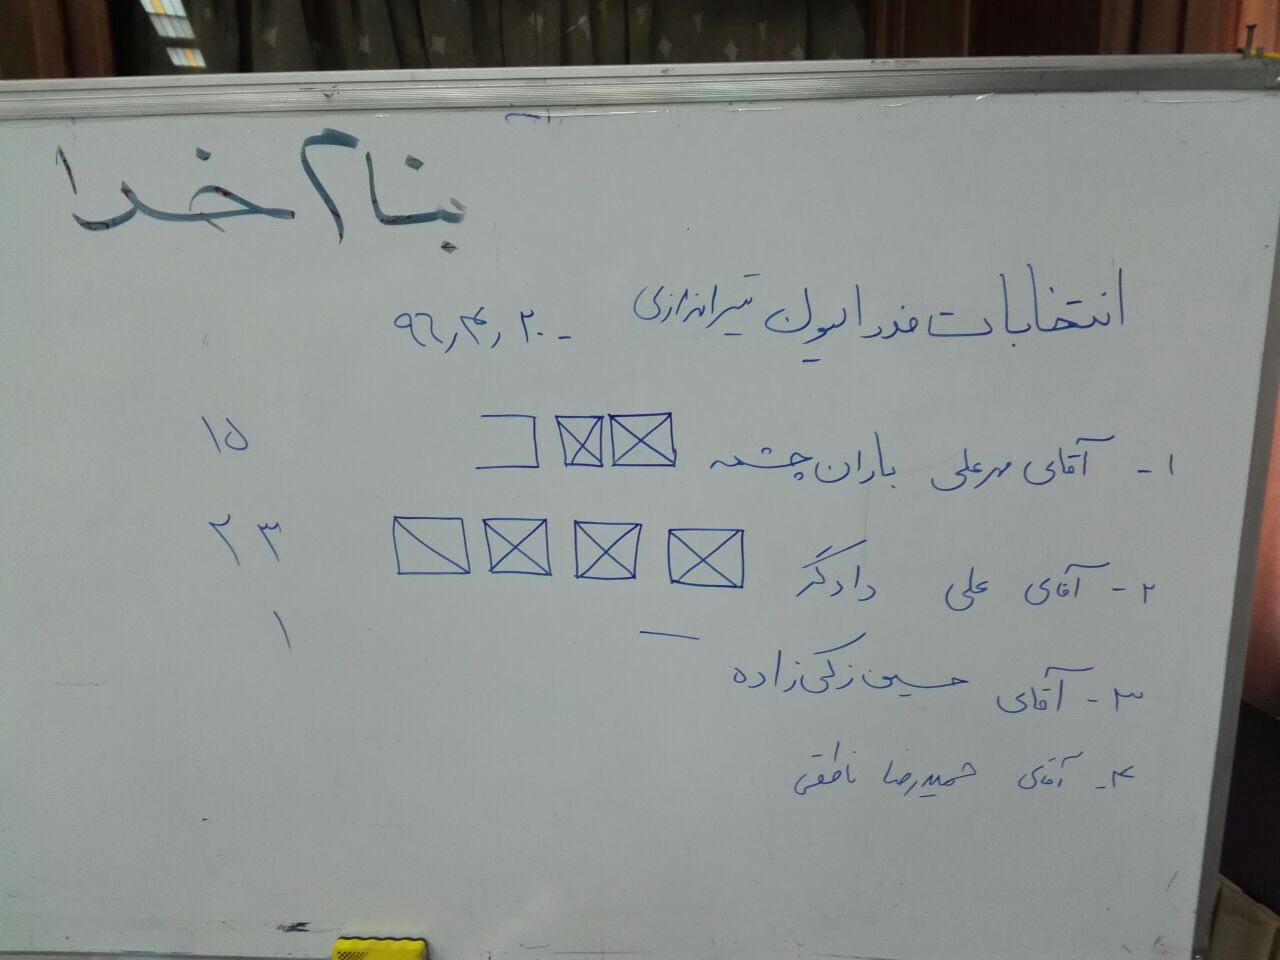 بنام خدا
انتخابات فدراسیون تیراندازی ـ ۹۶٫۴٫۲۰
۱ـ آقای مهرعلی باران چشمه ۱۵
۲ـ آقای علی دادگر ۲۳
۳ـ آقای حسین زکی زاده — ۱
۴ـ آقای حمیدرضا ناطقی